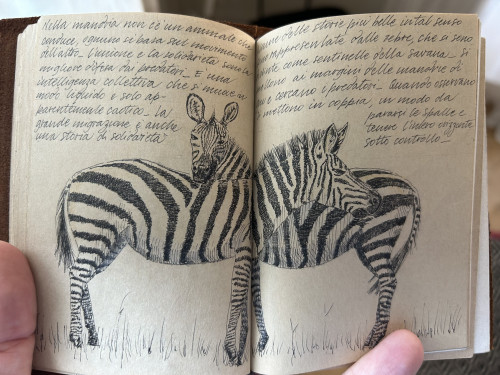 Nella mandria non c'è un animale che
conduce, ognuno si basa sul movimento
dell'altro. L'unione e la solidarietà sono la
migliore difesa dai predatori. È una
intelligenza collettiva che si muove in
modo fluido e solo ap-
parentemente caotico. La
grande migrazione è anche
una storia di solidarietà
una delle storie più belle in tal senso
rappresentata dalle zebre, che si sono
come sentinelle della savana. Si
ai margini delle mandrie e
cercano i predatori. Quando osservano
si mettono in coppia, in modo da
pararsi le spalle e
tenere l'intero orizzonte
sotto controllo